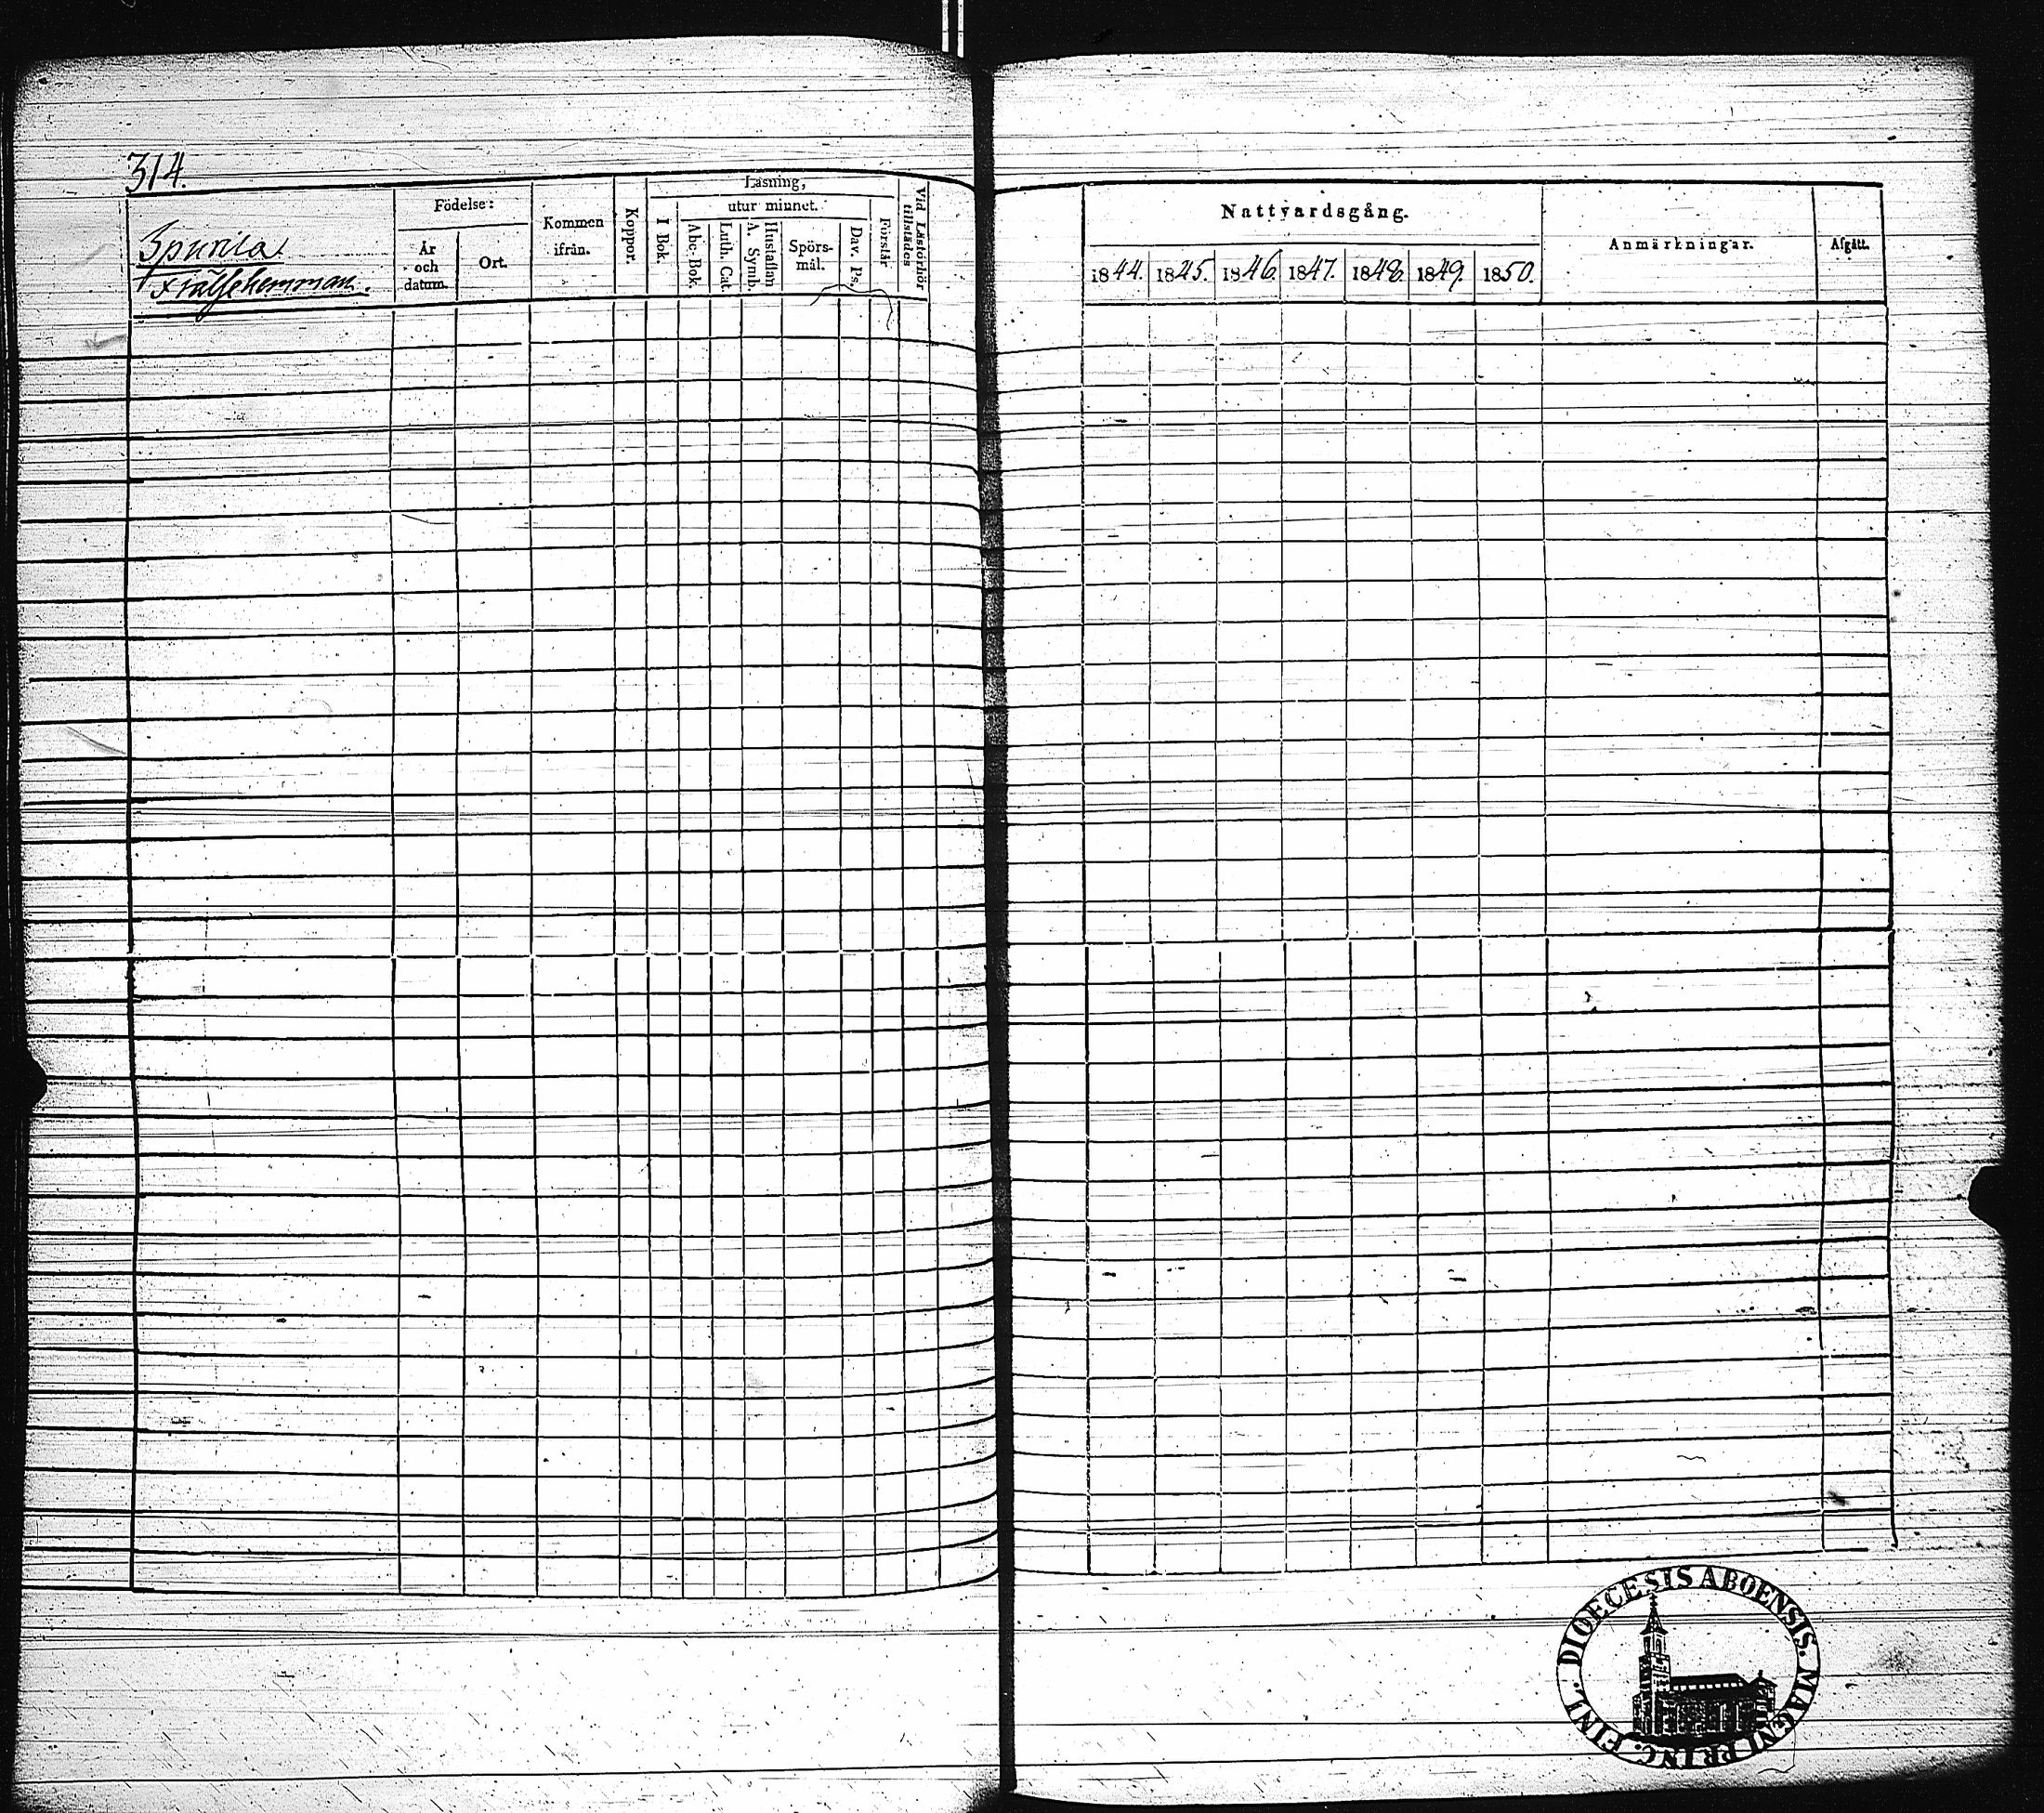 314.
Spurila
Frälsehemman.
Födelse:
År
och
datum.
Ort.
Kommen
ifrån.
Koppor.
Läsning,
I Bok.
utur minnet.
Abc-Bok.
Luth. Cat.
Hustaflan
A. Symb.
Spörs-
mål.
Dav. Ps.
Förstår
Vid Läsförhör
tillstädes
Nattvardsgång.
1844.
1845.
1846.
1847.
1848.
1849.
1850.
Anmärkningar.
Afgått.
DIOECESIS ABOENSIS. MAGNI PRINC. FINL.